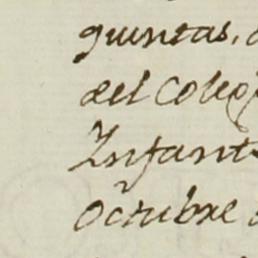 quintas,
del Coleg
Infant
Octubre